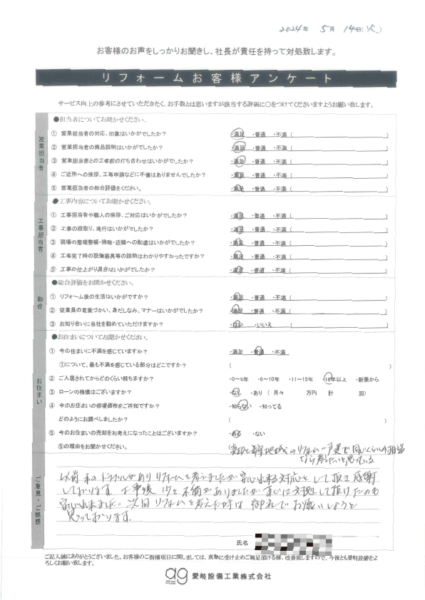 2024年 5月 14日(火)
お客様のお声をしっかりお聞きし、社長が責任を持って対処致します。
リフォームお客様アンケート
サービス向上の参考にさせていただきたく、お手数とは思いますが該当する評価に○をつけてくださいますようお願い致します。
営業担当者
●担当者についてお聞かせください。
① 営業担当者の対応、印象はいかがでしたか? ・満足 ・普通 ・不満 ( )
② 営業担当者の商品説明はいかがでしたか? ・満足 ・普通 ・不満 ( )
③ 営業担当者との工事前の打ち合わせはいかがでしたか? ・満足 ・普通 ・不満 ( )
④ ご近所への挨拶、工事申請などに不備はありませんでしたか? ・満足 ・普通 ・不満 ( )
⑤ 営業担当者の総合評価をください。 ・満足 ・普通 ・不満 ( )
工事担当者
●工事内容についてお聞かせください。
① 工事担当者や職人の挨拶、ご対応はいかがでしたか? ・満足 ・普通 ・不満 ( )
② 工事の段取り、進行はいかがでしたか? ・満足 ・普通 ・不満 ( )
③ 現場の整理整頓・掃除・近隣への配慮はいかがでしたか? ・満足 ・普通 ・不満 ( )
④ 工事完了時の設備器具等の説明はわかりやすかったですか? ・満足 ・普通 ・不満 ( )
⑤ 工事の仕上がり具合はいかがでしたか? ・満足 ・普通 ・不満 ( )
総合
●総合評価をお聞かせください。
① リフォーム後の生活はいかがですか? ・満足 ・普通 ・不満 ( )
② 従業員の言葉づかい、身だしなみ、マナーはいかがでしたか? ・満足 ・普通 ・不満 ( )
③ お知り合いに当社を勧めていただけますか? ・はい ・いいえ ( )
お住まい
●お住まいについてお聞かせください。
① 今の住まいに不満を感じていますか? ・満足 ・普通 ・不満
①について、最も不満を感じている部分はどこですか? ( )
② ご入居されてからどのくらい経ちますか? ・0〜5年 ・6〜10年 ・11〜15年 ・16年以上 ・新築から
③ ローンの残債はございますか? ・なし ・あり ( 月々 万円 計 回)
④ 今のお住まいの修繕履歴をご存知ですか? ・知らない ・知ってる
どのようにお調べしましたか? ( )
⑤ 今のお住まいの売却をお考えになったことはございますか? ・ある ・ない
⑤の理由をお聞かせください。
ご意見・ご感想
以前 水のトラブルがありリフォームを考えましたが 対応をして頂き感謝
しております 工事後 少々不備がありましたが すぐに対処して頂けたので
次回リフォームを考えた時は 御社でお願いしようと
思っております。
氏名
ご記入誠にありがとうございました。お客様のご指摘項目に関しましては、真摯に受け止めご確認頂ける様、改善致しますので、今後とも愛岐設備をよろしくお願い致します。
ag 愛岐設備工業株式会社